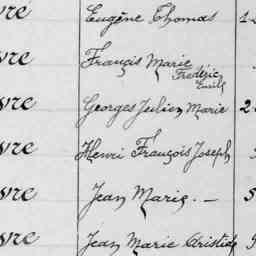 vre Eugène Thomas
vre Françis Marie
Frédéric
Emile
vre Georges Julien Marie 2
vre Henri François Joseph
vre Jean Marie. — 5
vre Jean Marie Aristide